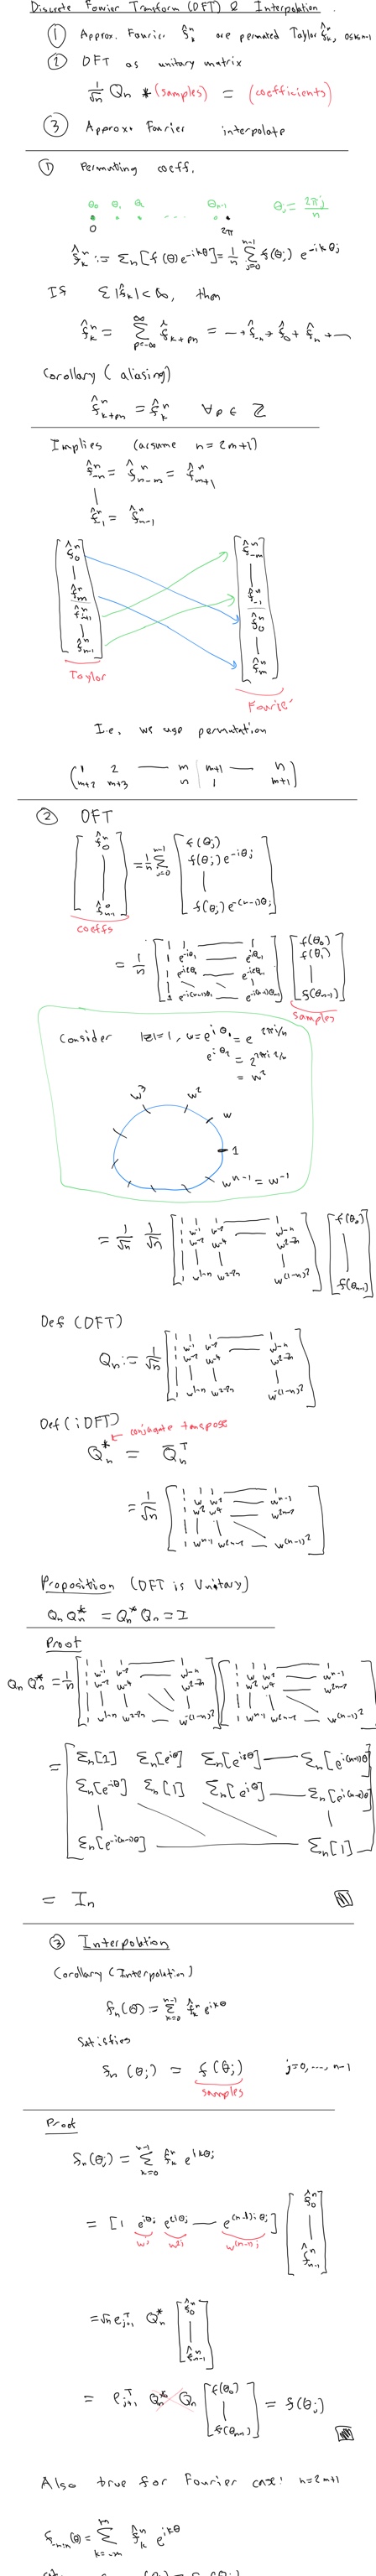 Discrete Fourier Transform (DFT) & Interpolation.
① Approx. Fourier f̂ₖⁿ are permuted Taylor f̂ₖⁿ, 0≤k≤n-1
② DFT as unitary matrix
1/√n Qn * (samples) = (coefficients)
③ Approx. Fourier interpolate
① Permuting coeff.
θ₀ θ₁ θ₂ ..... θₙ₋₁ θⱼ = 2πj/n
0 2π
f̂ₖⁿ := Σₙ[f(θ)e^{-ikθ}] = 1/n Σ_{j=0}^{n-1} f(θⱼ) e^{-ikθⱼ}
If Σ|f̂ₖ| < ∞, then
f̂ₖⁿ = Σ_{p=-∞}^{∞} f̂ₖ₊ₚₙ = ⋯ + f̂₋ₙ + f̂₀ + f̂ₙ + ⋯
Corollary (aliasing)
f̂ⁿₖ₊ₚₙ = f̂ₖⁿ ∀p ∈ ℤ
Implies (assume n=2m+1)
f̂ⁿ₋ₘ = f̂ⁿₙ₋ₘ = f̂ⁿₘ₊₁
|
f̂ⁿ₋₁ = f̂ⁿₙ₋₁
[f̂₀ⁿ | f̂ₘⁿ f̂ⁿₘ₊₁ | f̂ⁿₙ₋₁] [f̂ⁿ₋ₘ | f̂ⁿ₋₁ f̂₀ⁿ | f̂ₘⁿ]
Taylor Fourier
I.e. we use permutation
(1 2 — m | m+1 — n
m+2 m+3 n | 1 m+1)
② DFT
[f̂₀ⁿ | f̂ⁿₙ₋₁] = 1/n Σ_{j=0}^{n-1} [f(θⱼ) f(θⱼ)e^{-iθⱼ} | f(θⱼ)e^{-(n-1)θⱼ}]
coeffs
= 1/n [1 1 — 1] [f(θ₀) f(θ₁) | f(θₙ₋₁)]
samples
Consider |z|=1, w=e^{iθ₁} = e^{2πi/n}
= w²
w³ w² w 1 w^{n-1} = w^{-1}
= 1/√n 1/√n [1 1 1 — 1; 1 w⁻¹ w⁻² — w^{1-n}; 1 w⁻² w⁻⁴ — w^{2-2n}; 1 w^{1-n} w^{2-2n} w^{-(1-n)²}] [f(θ₀) | f(θₙ₋₁)]
Def (DFT)
Qn := 1/√n [1 1 1 — 1; 1 w⁻¹ w⁻² — w^{1-n}; 1 w⁻² w⁻⁴ — w^{2-2n}; 1 w^{1-n} w^{2-2n} w^{-(1-n)²}]
Def (iDFT)
← conjugate transpose
Qn* = Q̄nᵀ
= 1/√n [1 1 1 — 1; 1 w w² — w^{n-1}; 1 w² w⁴ — w^{2n-2}; 1 w^{n-1} w^{2n-2} — w^{(n-1)²}]
Proposition (DFT is Unitary)
Qn Qn* = Qn* Qn = I
Proof
Qn Qn* = 1/n [1 1 1 — 1; 1 w⁻¹ w⁻² — w^{1-n}; 1 w⁻² w⁻⁴ — w^{2-2n}; 1 w^{1-n} w^{2-2n} w^{-(1-n)²}] [1 1 1 — 1; 1 w w² — w^{n-1}; 1 w² w⁴ — w^{2n-2}; 1 w^{n-1} w^{2n-2} — w^{(n-1)²}]
= [Σₙ[1] Σₙ[e^{iθ}] Σₙ[e^{i2θ}] — Σₙ[e^{i(n-1)θ}]
Σₙ[e^{-iθ}] Σₙ[1] Σₙ[e^{iθ}] — Σₙ[e^{i(n-2)θ}]
Σₙ[e^{-i(n-1)θ}] — Σₙ[1]]
= Iₙ
③ Interpolation
Corollary (Interpolation)
fₙ(θ) = Σ_{k=0}^{n-1} f̂ₖⁿ e^{ikθ}
satisfies
fₙ(θⱼ) = f(θⱼ) j=0,…,n-1
samples
Proof
fₙ(θⱼ) = Σ_{k=0}^{n-1} f̂ₖⁿ e^{ikθⱼ}
= [1 e^{iθⱼ} e^{2iθⱼ} — e^{(n-1)iθⱼ}] [f̂₀ⁿ | f̂ⁿₙ₋₁]
w^j w^{2j} w^{(n-1)j}
= √n eⱼ₊₁ᵀ Qn* [f̂₀ⁿ | f̂ⁿₙ₋₁]
= eⱼ₊₁ᵀ Qn* Qn [f(θ₀) | f(θₙ₋₁)] = f(θⱼ)
Also true for Fourier case: n=2m+1
f₋ₘ:ₘ(θ) = Σ_{k=-m}^{m} f̂ₖⁿ e^{ikθ}